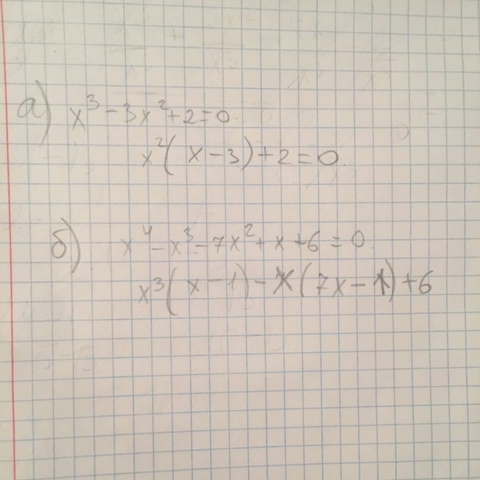 а) x³ - 3x² + 2 = 0.
x²(x - 3) + 2 = 0
б) x⁴ - x³ - 7x² + x + 6 = 0
x³(x - 1) - x(7x - 1) + 6